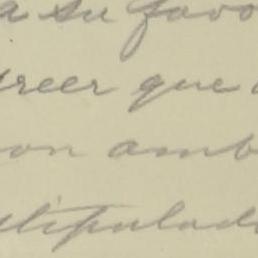 a su favo
reer que
on amb
stipulad